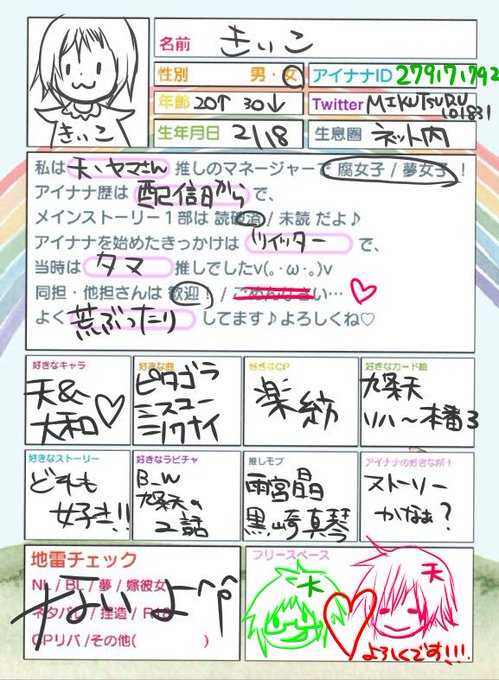 名前 きいこ
性別 男・女 アイナナID 279,171,792
年齢 20↑ 30↓ Twitter MIKUTSURU101831
生年月日 2/18 生息圏 ネット内
きいこ
私は 天、ヤマさん 推しのマネージャーで 腐女子 / 夢女子 !
アイナナ歴は 配信日から で、
メインストーリー1部は 読破済 / 未読 だよ♪
アイナナを始めたきっかけは ツイッター で、
当時は タマ 推しでしたv(。・ω・。)v
同担・他担さんは 歓迎! / ごめんなさい…♡
よく 荒ぶったり してます♪よろしくね♡
好きなキャラ 好きな曲 好きなCP 好きなカード絵
天&大和♡
ピタゴラ
ミスユー
シリナイ
楽紡
九条天
リハ〜本番3
好きなストーリー 好きなラビチャ 推しモブ アイナナの好きな所!
どれも
好き!!
B-W
九条天の
2話
雨宮晶
黒崎真琴
ストーリー
かなぁ?
地雷チェック フリースペース
NL / BL / 夢 / 嫁彼女
ネタバレ / 捏造 / R18
CPリバ /その他( )
ないよ
大 天
よろしくです!!!